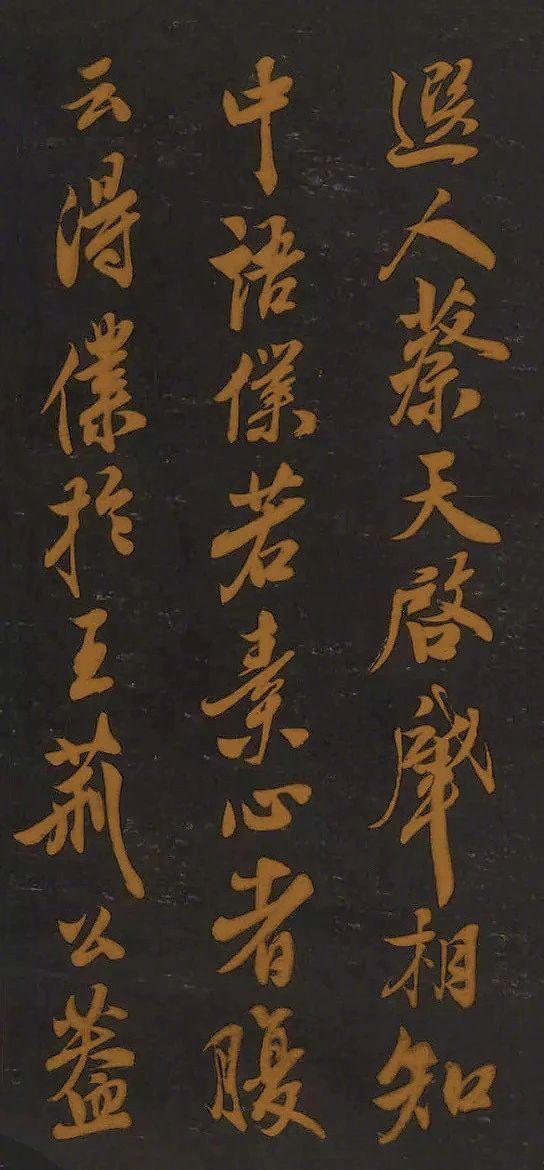 遐人蔡天啓肇相知
中語僕若素心者腹
云得僕於王荆公蓋